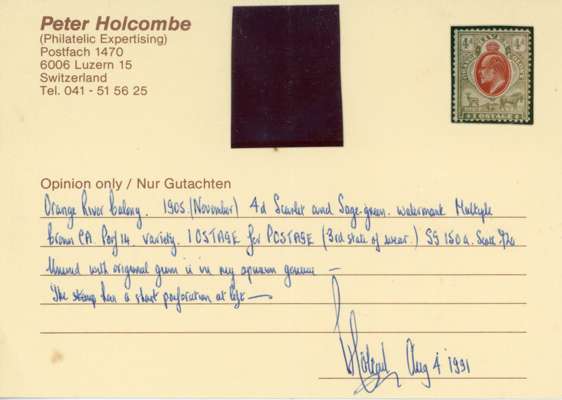 Peter Holcombe
(Philatelic Expertising)
Postfach 1470
6006 Luzern 15
Switzerland
Tel. 041 - 51 56 25
4d 4d
POSTAGE
Opinion only / Nur Gutachten
Orange River Colony. 1905 (November) 4d Scarlet and Sage-green. watermark Multiple
Crown CA. Perf 14. variety. IOSTAGE for POSTAGE (3rd state of wear.) SG 150a.
Unused with original gum is in my opinion genuine —
The stamp has a short perforation at left —
Aug 4 1991